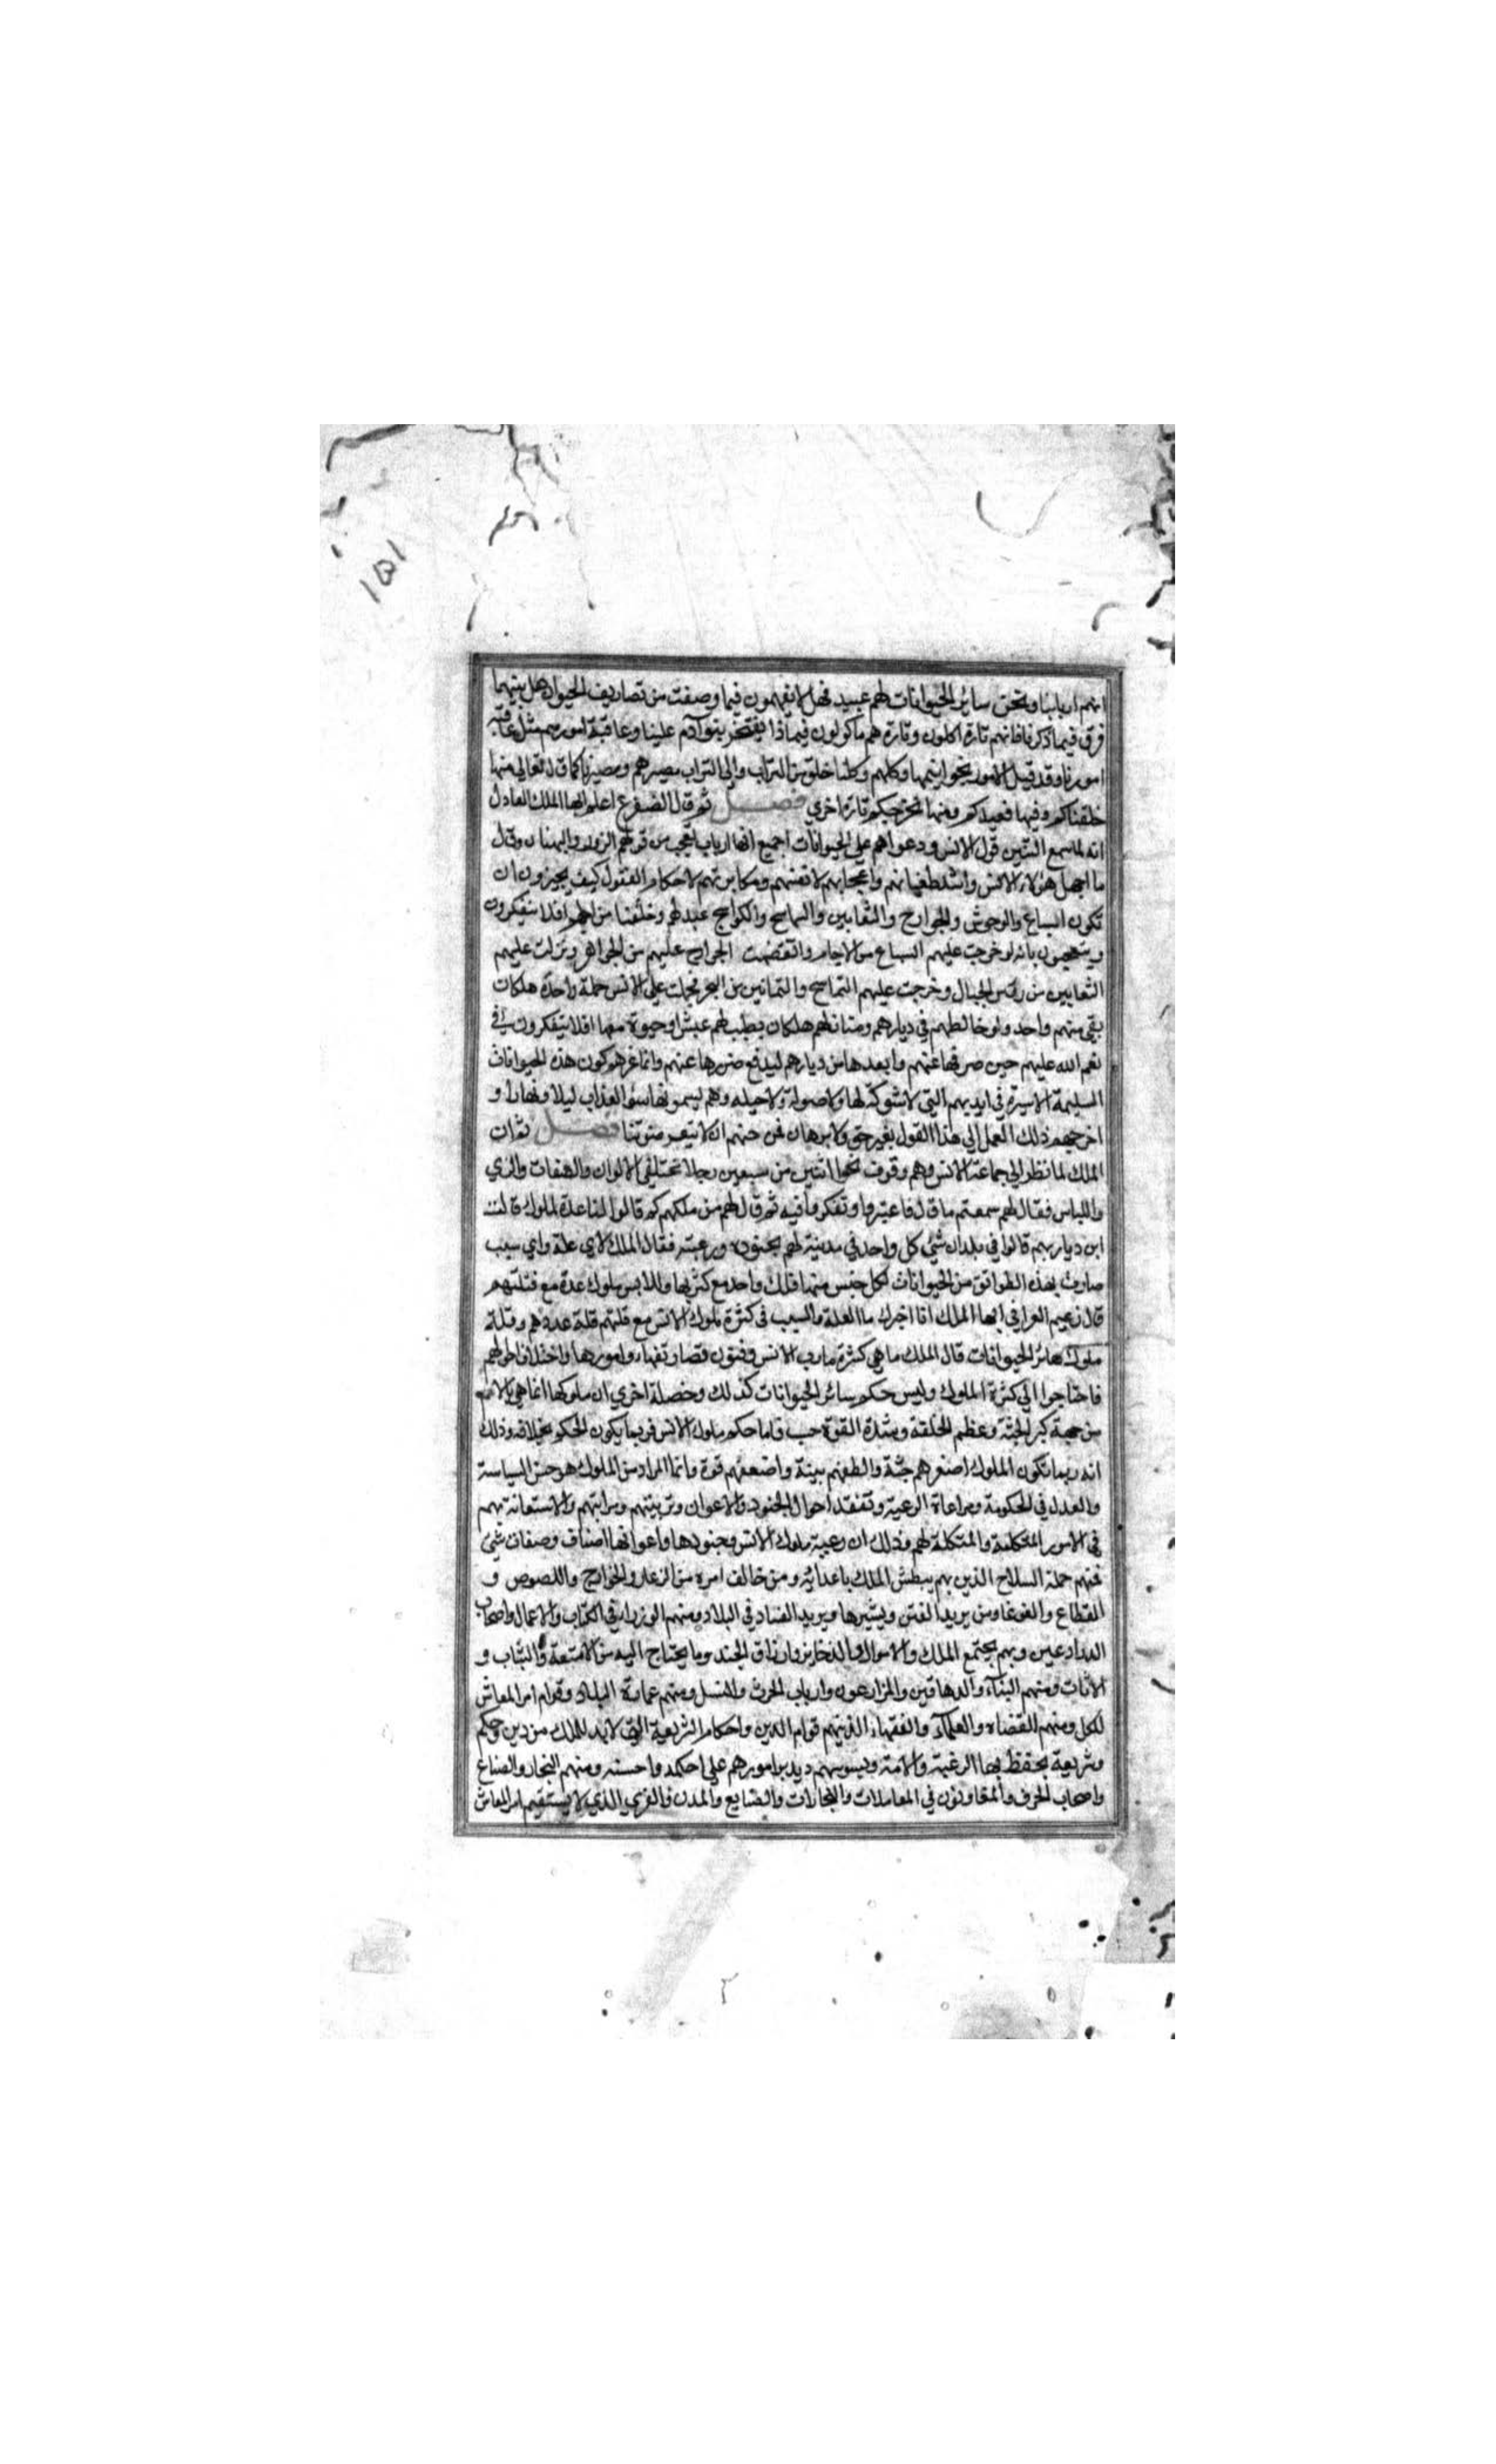 ١٥١
انهم اربابنا ونحن سائر الحيوانات لهم عبيد فهل لا تفهمون فيما وصفت من تصاريف الحيوان هل بينهما
فرق فيما ذكرنا فانهم تارة اكلون وتارة هم ماكولون فيماذا يفتخر بنو آدم علينا وعاقبة امورهم مثل عاقبة
امورنا وقد قيل الامور بخواتيمها وكلهم وكلنا خلق من التراب والى التراب مصيرهم ومصيرنا كما قال تعالى منها
خلقناكم وفيها نعيدكم ومنها نخرجكم تارة اخري فصل ثم قال الضفدع اعلم ايها الملك العادل
انه لما سمع التنين قول الانس ودعواهم على الحيوانات اجمع انها ارباب تعجب من قولهم الزور والبهتان وقال
ما اجهل هؤلاء الانس واشد طغيانهم واعجابهم لانفسهم ومكابرتهم لاحكام العقول كيف يجيزون ان
تكون السباع والوحوش والجوارح والثعابين والتماسح والكواسج عبد لهم وخلقنا من اجلهم افلا يتفكرون
بانه لو خرجت عليهم السباع من الاجام وانقضت الجوارح عليهم من الجو ونزلت عليهم
الثعابين من رؤس الجبال وخرجت عليهم التماسح والتنانين من البحر فحملت على الانس حملة واحدة هل كان
يبقى منهم واحد ولو خالطهم في ديارهم ومنازلهم هل كان يطيب لهم عيش او حيوة معها افلا يتفكرون في
نعم الله عليهم حين صرفها عنهم وابعدها من ديارهم ليدفع ضررها عنهم وانما غرهم كون هذه الحيوانات
السليمة الاسيرة في ايديهم التي لا شوكة لها ولا صولة ولا حيلة وهم يسومونها سوء العذاب ليلا ونهارا و
اخرجهم ذلك العمل الى هذا القول بغير حق ولا برهان فصل ثم ان
الملك لما نظر الى جماعة الانس وهم وقوف نحو اثنين من سبعين رجلا مختلفي الالوان والصفات والزي
واللباس فقال لهم سمعتم ما قال فاعتبروا وتفكروا فيه ثم قال لهم من ملككم قالوا لنا عدة ملوك قالت
اين ديارهم قالوا في بلدان شتى كل واحد في مدينة لهم بجنوده ورعيته فقال الملك لاي علة واي سبب
صارت بهذه الطوائف من الحيوانات لكل جنس منها ملك واحد مع كثرتها وللانس ملوك عدة مع قلتهم
قال زعيم العراقي ايها الملك انا اخبرك ما العلة والسبب في كثرة ملوك الانس مع قلتهم قلة عددهم وقلة
ملوك سائر الحيوانات قال الملك ما هي كثرة مارب الانس وفنون تصاريفها وامورها واختلاف احوالهم
فاحتاجوا الى كثرة الملوك وليس حكم سائر الحيوانات كذلك وخصلة اخري ان ملوكها انما هي بالاسم
من جهة كبر الجثة وعظم الخلقة وشدة القوة حسب فاما حكم ملوك الانس فربما يكون الحكم بخلافه وذلك
انه ربما تكون الملوك اصغرهم جثة والطفهم بينة واضعفهم قوة وانما المراد من الملوك هو حسن السياسة
والعدل في الحكومة ومراعاة الرعية وتفقد احوال الجنود والاعوان وترتيبهم ومراتبهم والاستعانة بهم
في الامور المشكلة لهم وذلك ان رعية ملوك الانس وجنودها واعوانها اصناف وصفات شتى
فمنهم حملة السلاح الذين بهم يبطش الملك باعدائه ومن خالف امره من الزعار والخوارج واللصوص و
القطاع والغوغا ومن يريد الفتن ويثيرها ويريد الفساد في البلاد ومنهم الوزراء في الكتاب والاعمال واصحاب
وبهم يجتمع الملك والاموال والذخاير وارزاق الجند وما يحتاج اليه من الامتعة والثياب و
الاثاث ومنهم البناء والدهاقين والمزارعون وارباب الحرث والنسل ومنهم عمارة البلاد وقوام امر المعاش
للكل ومنهم القضاة والعلماء والفقهاء الذين بهم قوام الدين واحكام الشريعة التي لا بد للملك من دين وحكم
وشريعة يحفظ بها الرعية والامة ويسوسهم ويدبر امورهم على احكمه واحسنه ومنهم التجار والصناع
واصحاب الحرف والمعاونون في المعاملات والتجارات والصنايع والمدن والقري الذي لا يستقيم امر المعاش